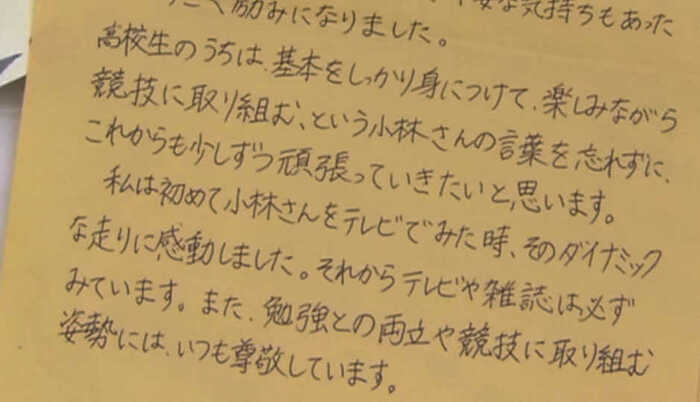 励みになりました。 な気持ちもあった
高校生のうちは、基本をしっかり身につけて、楽しみながら
競技に取り組む、という小林さんの言葉を忘れずに、
これからも少しずつ頑張っていきたいと思います。
私は初めて小林さんをテレビでみた時、そのダイナミック
な走りに感動しました。それからテレビや雑誌は必ず
みています。また、勉強との両立や競技に取り組む
姿勢には、いつも尊敬しています。